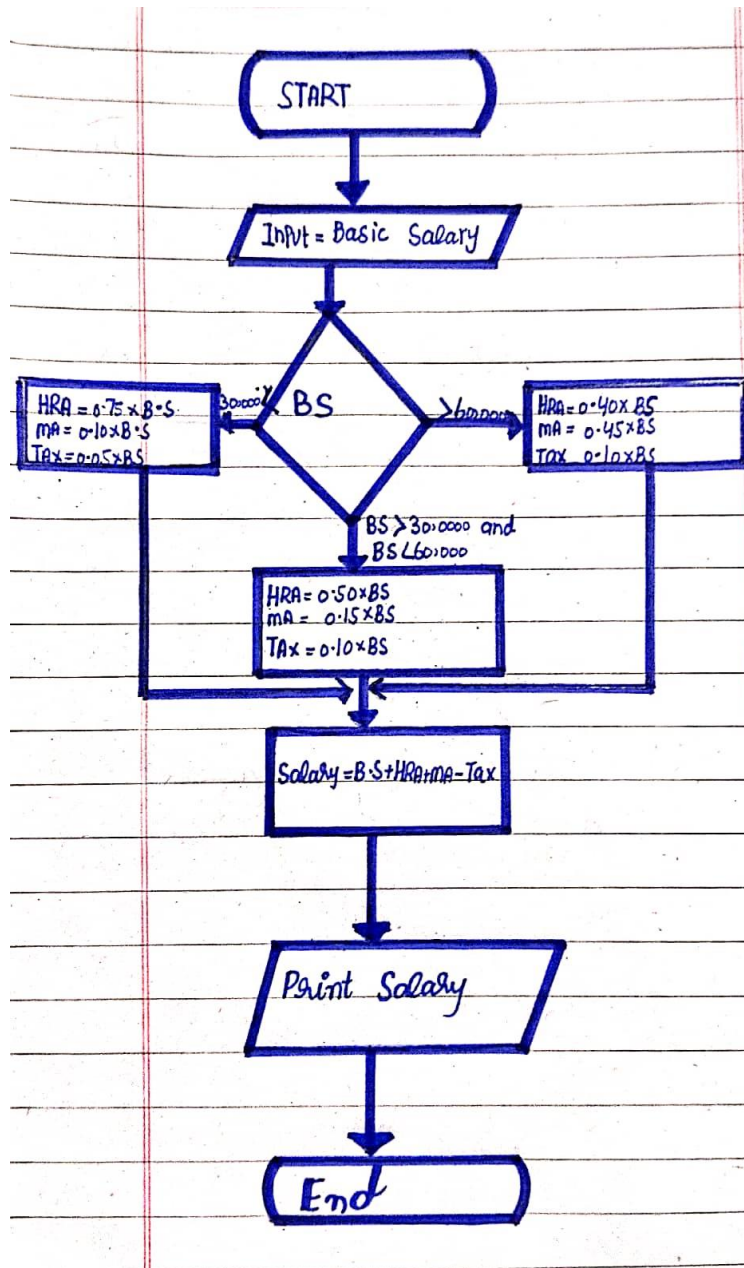 START
Input = Basic Salary
BS
HRA = 0.75 x B.S
mA = 0.10 x B.S
TAX = 0.05 x BS
>60,000
HRA = 0.40 x BS
mA = 0.45 x BS
Tax 0.10 x BS
BS > 30,0000 and
BS < 60,000
HRA = 0.50 x BS
mA = 0.15 x BS
TAX = 0.10 x BS
Salary = B.S + HRA + mA - Tax
Print Salary
End